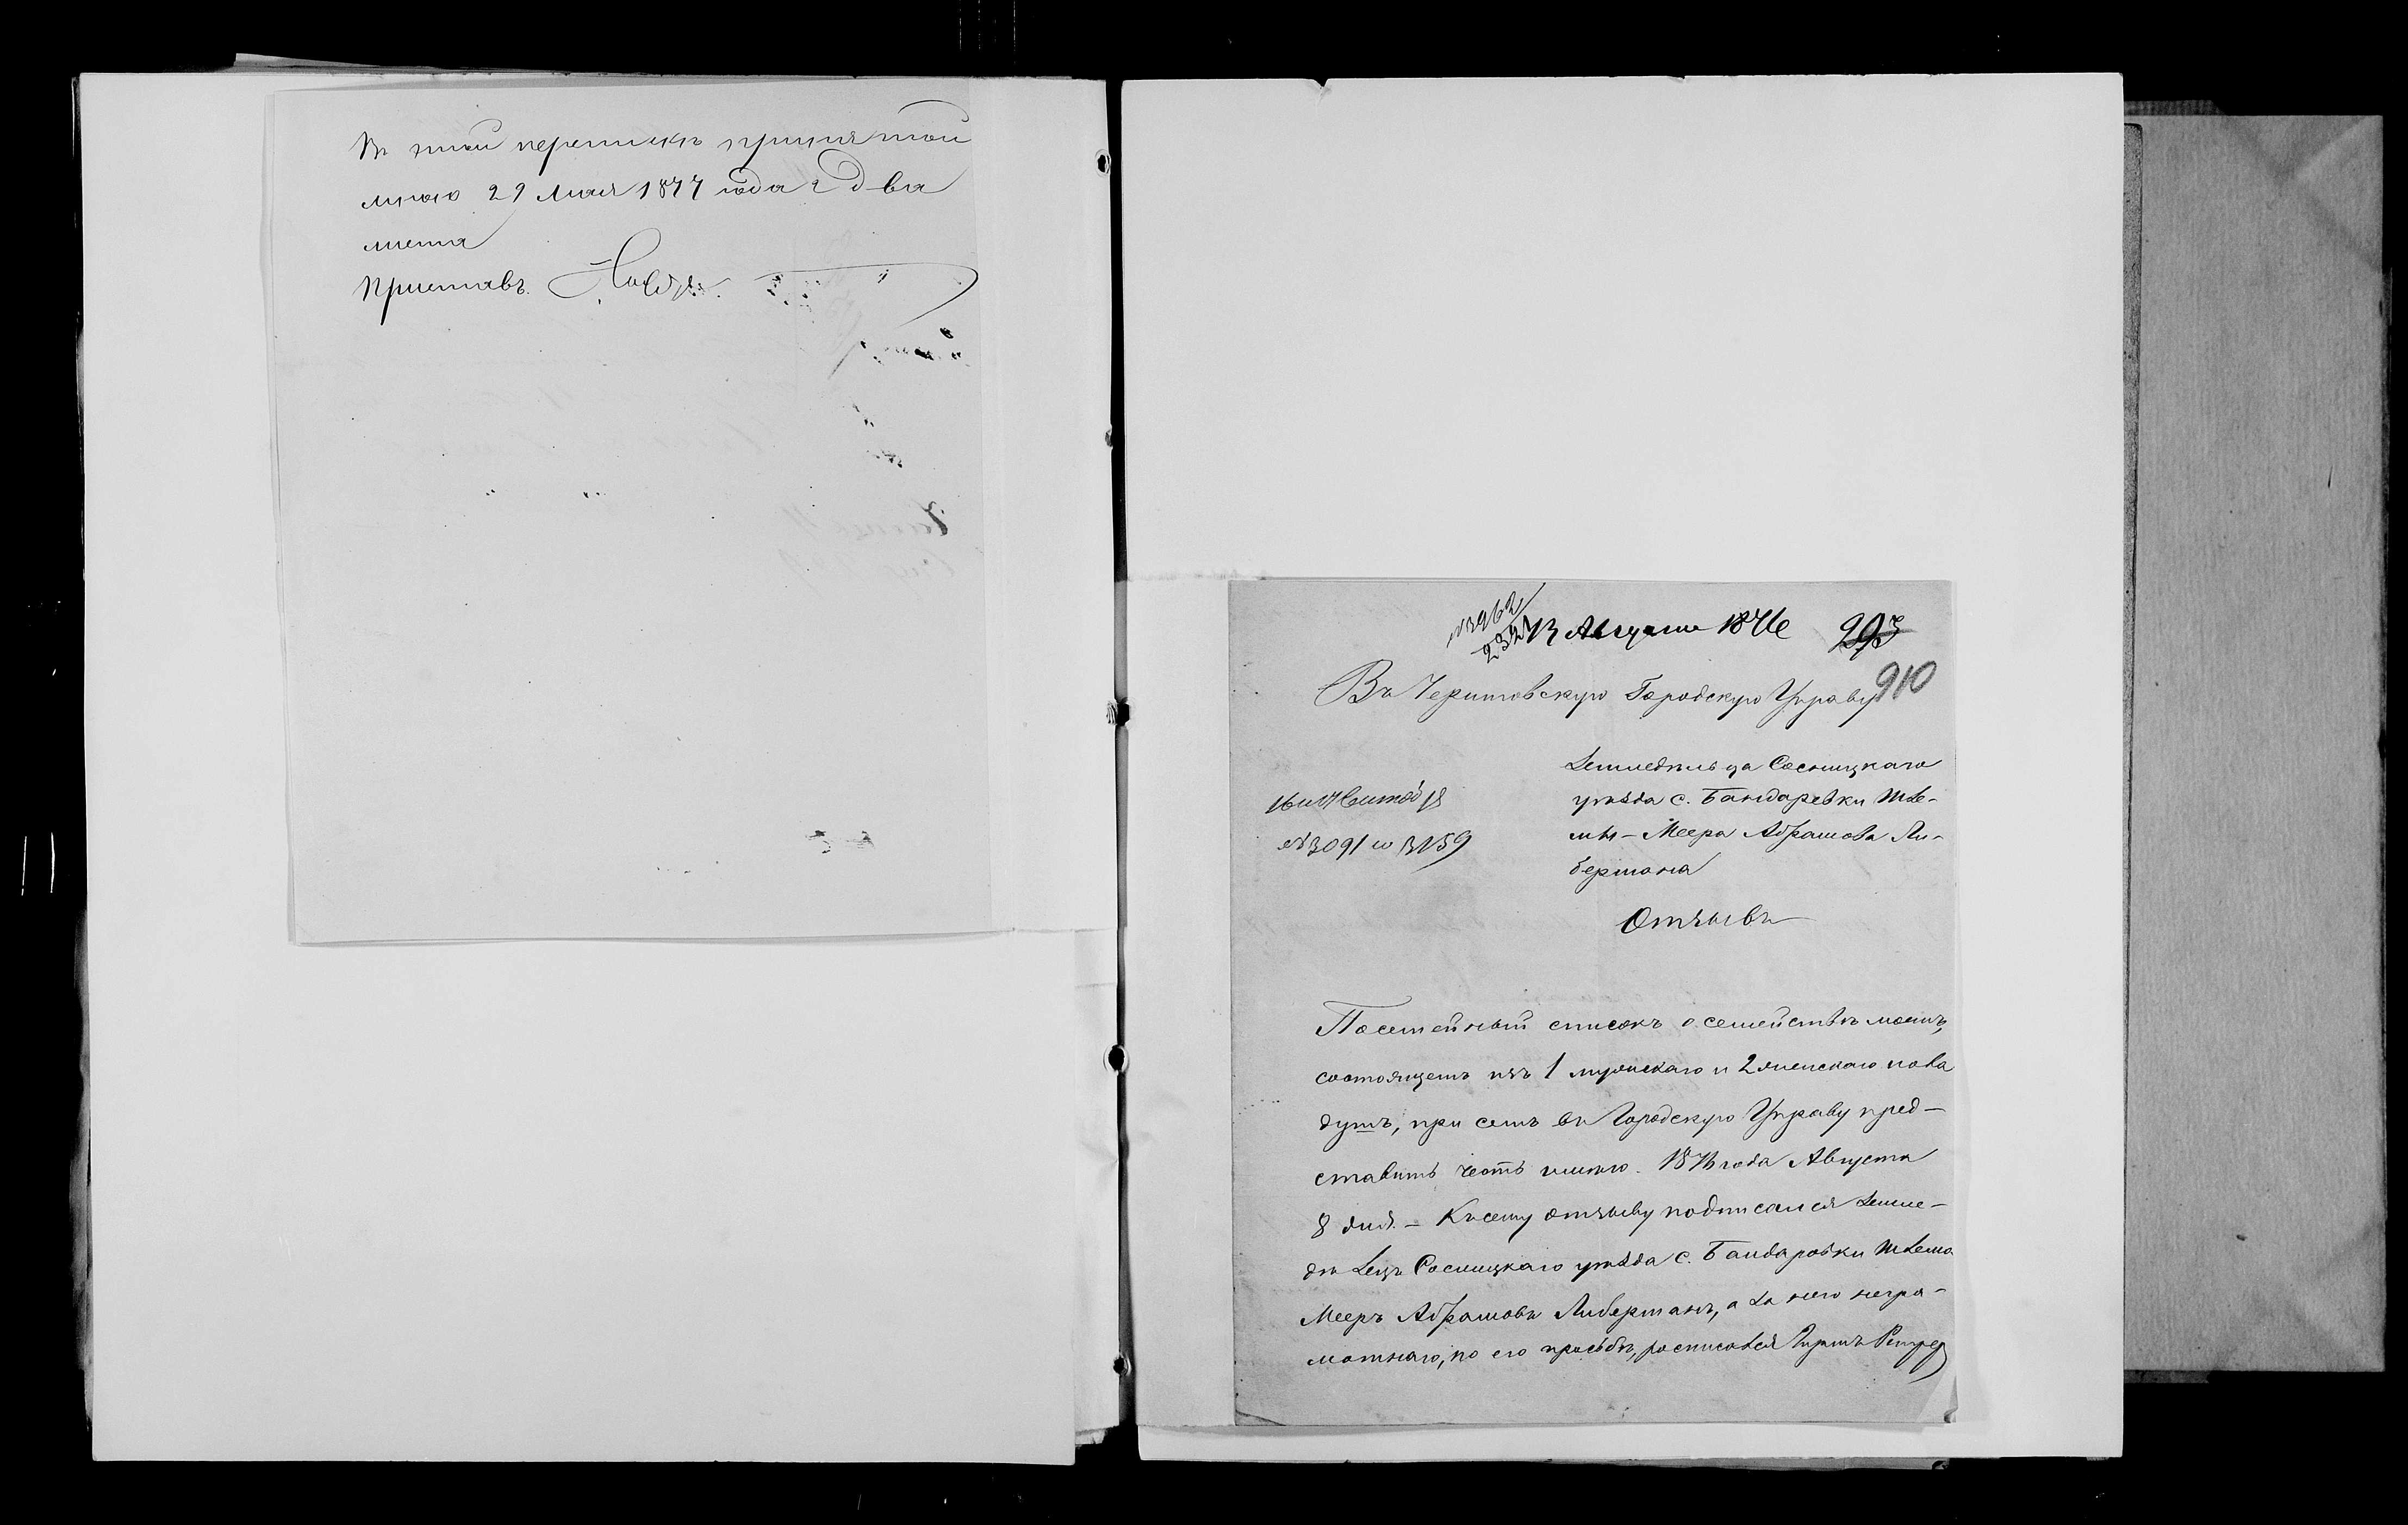 Въ этой перепискѣ принятой
мною 29 мая 1877 года 2 два
листа
Приставъ
№ 3962
2321
13 Августа 1876
293
910
Въ Черниговскую Городскую Управу
Земледѣльца Сосницкаго
уѣзда с. Бандаревки Шле-
мы-Меера Абрамова Ли-
бермана
16 и 17 Сентяб
№ 3091 и 3159
Отзывъ
Посемейный списокъ о семействѣ моемъ,
состоящемъ изъ 1 мужскаго и 2 женскаго пола
душъ, при семъ въ Городскую Управу пред-
ставить честь имѣю. 1876 года Августа
8 дня. – Къ сему отзыву подписался Земле-
дѣлецъ Сосницкаго уѣзда с. Бандаровки Шлема
Мееръ Абрамовъ Либерманъ, а за него негра-
мотнаго, по его просьбѣ, росписался Гиршъ